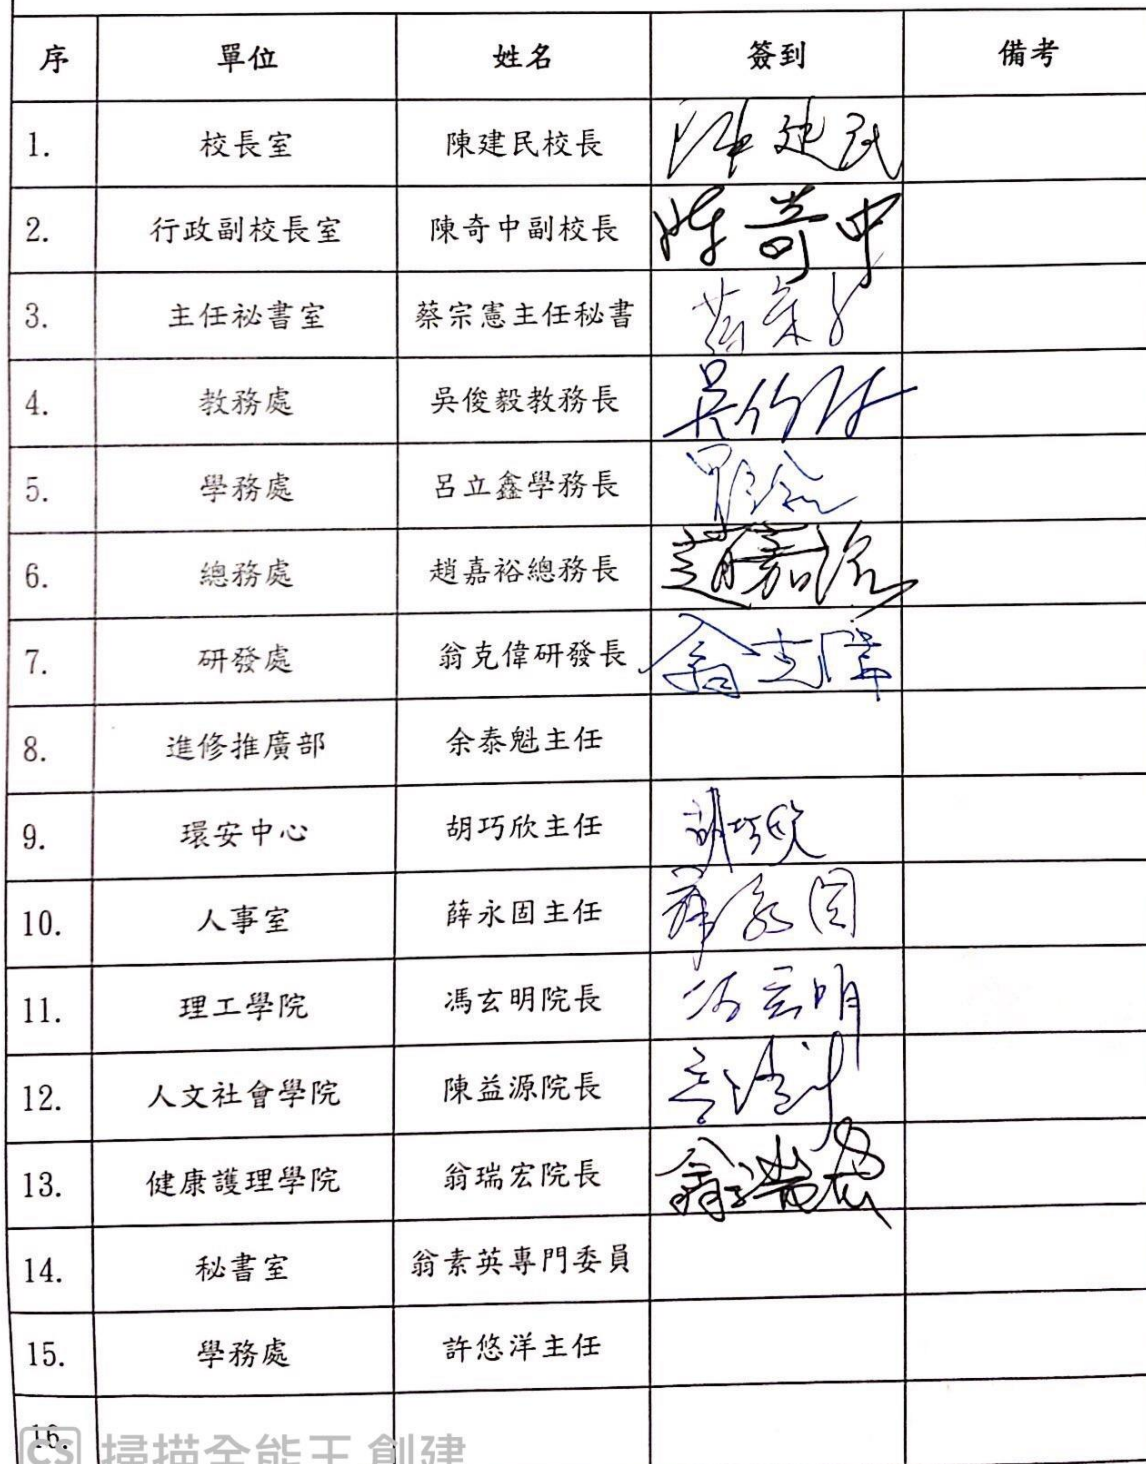 序 單位 姓名 簽到 備考
1. 校長室 陳建民校長 陳建民
2. 行政副校長室 陳奇中副校長 陳奇中
3. 主任祕書室 蔡宗憲主任秘書
4. 教務處 吳俊毅教務長
5. 學務處 呂立鑫學務長
6. 總務處 趙嘉裕總務長 趙嘉裕
7. 研發處 翁克偉研發長 翁克偉
8. 進修推廣部 余泰魁主任
9. 環安中心 胡巧欣主任 胡巧欣
10. 人事室 薛永固主任 薛永固
11. 理工學院 馮玄明院長 馮玄明
12. 人文社會學院 陳益源院長
13. 健康護理學院 翁瑞宏院長 翁瑞宏
14. 秘書室 翁素英專門委員
15. 學務處 許悠洋主任
16.
CS 掃描全能王 創建